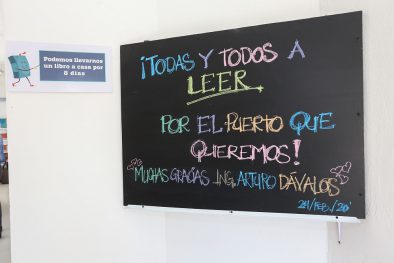 Podemos llevarnos
un libro a casa por
8 días
¡TODAS Y TODOS A
LEER.
POR EL PUERTO QUE
QUEREMOS!
"MUCHAS GRACIAS ING. ARTURO DÁVALOS"
24/FEB./20'